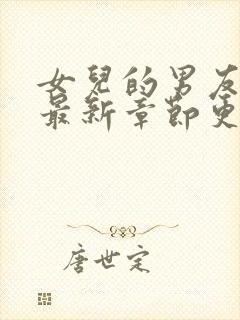 女兒的男友
最新章節更
唐世定